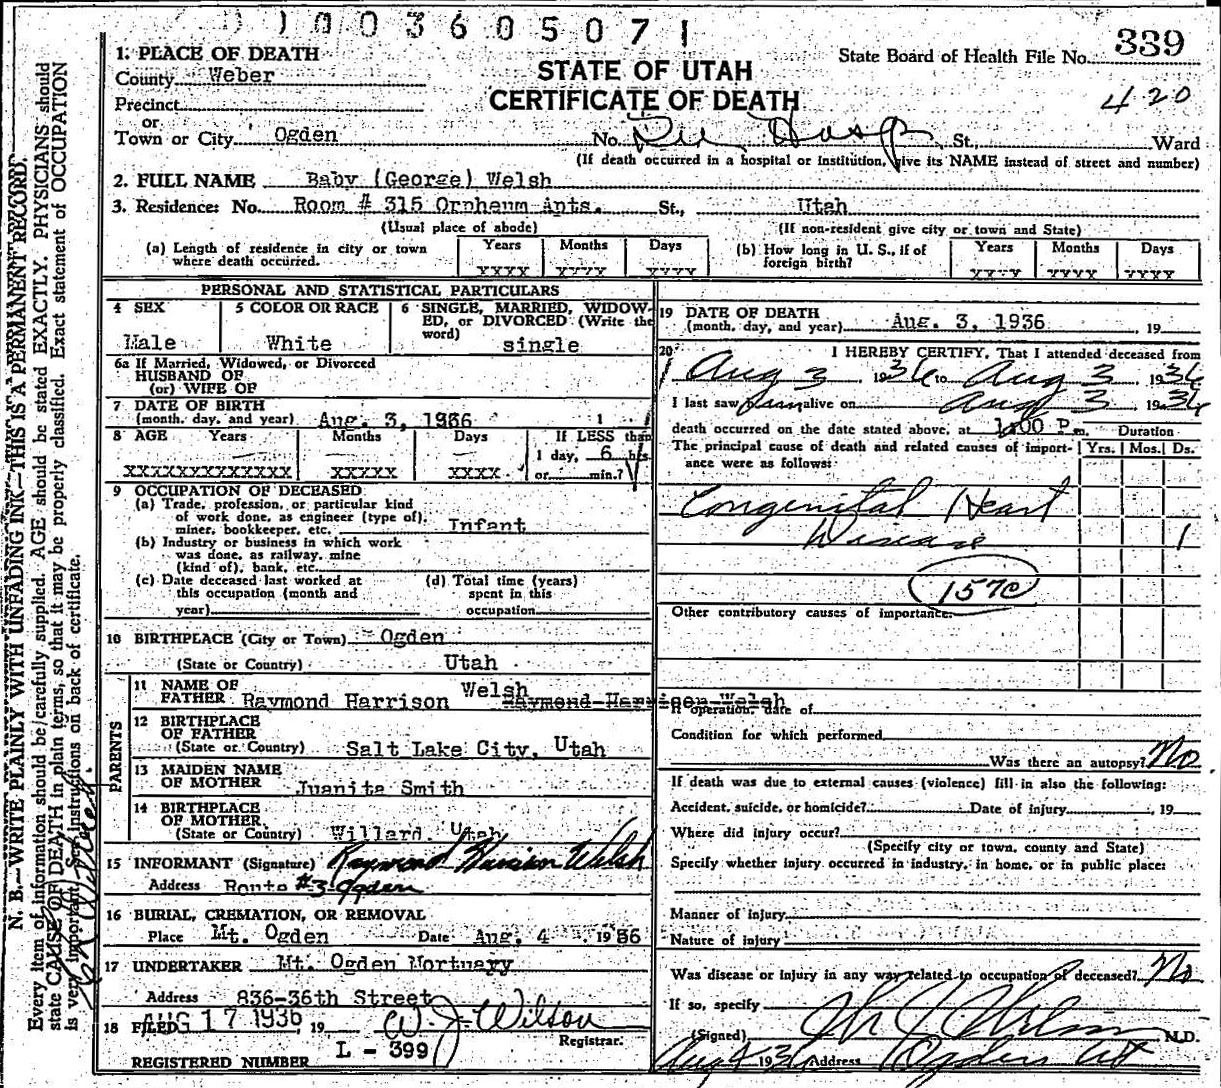 1003605071
1. PLACE OF DEATH
County Weber
Precinct
or
Town or City Ogden
STATE OF UTAH
CERTIFICATE OF DEATH
State Board of Health File No. 339
420
No. Dee Hosp St., Ward
(If death occurred in a hospital or institution, give its NAME instead of street and number)
2. FULL NAME Baby (George) Welsh
3. Residence: No. Room # 315 Orpheum Apts. St., Utah
(Usual place of abode) (If non-resident give city or town and State)
(a) Length of residence in city or town where death occurred. Years Months Days
XXXX XXXX XXXX
(b) How long in U. S., if of foreign birth? Years Months Days
XXXX XXXX XXXX
PERSONAL AND STATISTICAL PARTICULARS
4 SEX
Male
5 COLOR OR RACE
White
6 SINGLE, MARRIED, WIDOWED, or DIVORCED (Write the word)
single
6a If Married, Widowed, or Divorced
HUSBAND OF
(or) WIFE OF
7 DATE OF BIRTH
(month, day, and year) Aug. 3, 1936
8 AGE Years Months Days If LESS than
1 day, 6 hrs.
XXXXXXXXXXXXX XXXXX XXXX or min.?
9 OCCUPATION OF DECEASED
(a) Trade, profession, or particular kind
of work done, as engineer (type of),
miner, bookkeeper, etc. Infant
(b) Industry or business in which work
was done, as railway, mine
(kind of), bank, etc.
(c) Date deceased last worked at
this occupation (month and
year)
(d) Total time (years)
spent in this
occupation
10 BIRTHPLACE (City or Town) Ogden
(State or Country) Utah
PARENTS
11 NAME OF
FATHER Raymond Harrison Welsh Raymond Harrison Welsh
12 BIRTHPLACE
OF FATHER
(State or Country) Salt Lake City, Utah
13 MAIDEN NAME
OF MOTHER Juanita Smith
14 BIRTHPLACE
OF MOTHER
(State or Country) Willard, Utah
15 INFORMANT (Signature) Raymond Harrison Welsh
Address Route #3 Ogden
16 BURIAL, CREMATION, OR REMOVAL
Place Mt. Ogden Date Aug. 4 1936
17 UNDERTAKER Mt. Ogden Mortuary
Address 836-36th Street
18 FILED AUG 17 1936, 19 W. J. Wilson
Registrar.
REGISTERED NUMBER L - 399
19 DATE OF DEATH
(month, day, and year) Aug. 3, 1936, 19
20 I HEREBY CERTIFY, That I attended deceased from
Aug 3, 1936 to Aug 3, 1936
I last saw him alive on Aug 3, 1936
death occurred on the date stated above, at 1:00 P.m. Duration
The principal cause of death and related causes of importance were as follows: Yrs. Mos. Ds.
Congenital Heart
Disease 1
157c
Other contributory causes of importance:
If operation, date of
Condition for which performed
Was there an autopsy? No
If death was due to external causes (violence) fill in also the following:
Accident, suicide, or homicide? Date of injury, 19
Where did injury occur?
(Specify city or town, county and State)
Specify whether injury occurred in industry, in home, or in public place:
Manner of injury
Nature of injury
Was disease or injury in any way related to occupation of deceased? No
If so, specify
(Signed) M.D.
Aug 4 1936 Address Ogden Ut
N. B.—WRITE PLAINLY WITH UNFADING INK—THIS IS A PERMANENT RECORD.
Every item of information should be carefully supplied. AGE should be stated EXACTLY. PHYSICIANS should
state CAUSE OF DEATH in plain terms, so that it may be properly classified. Exact statement of OCCUPATION
is very important. See instructions on back of certificate.